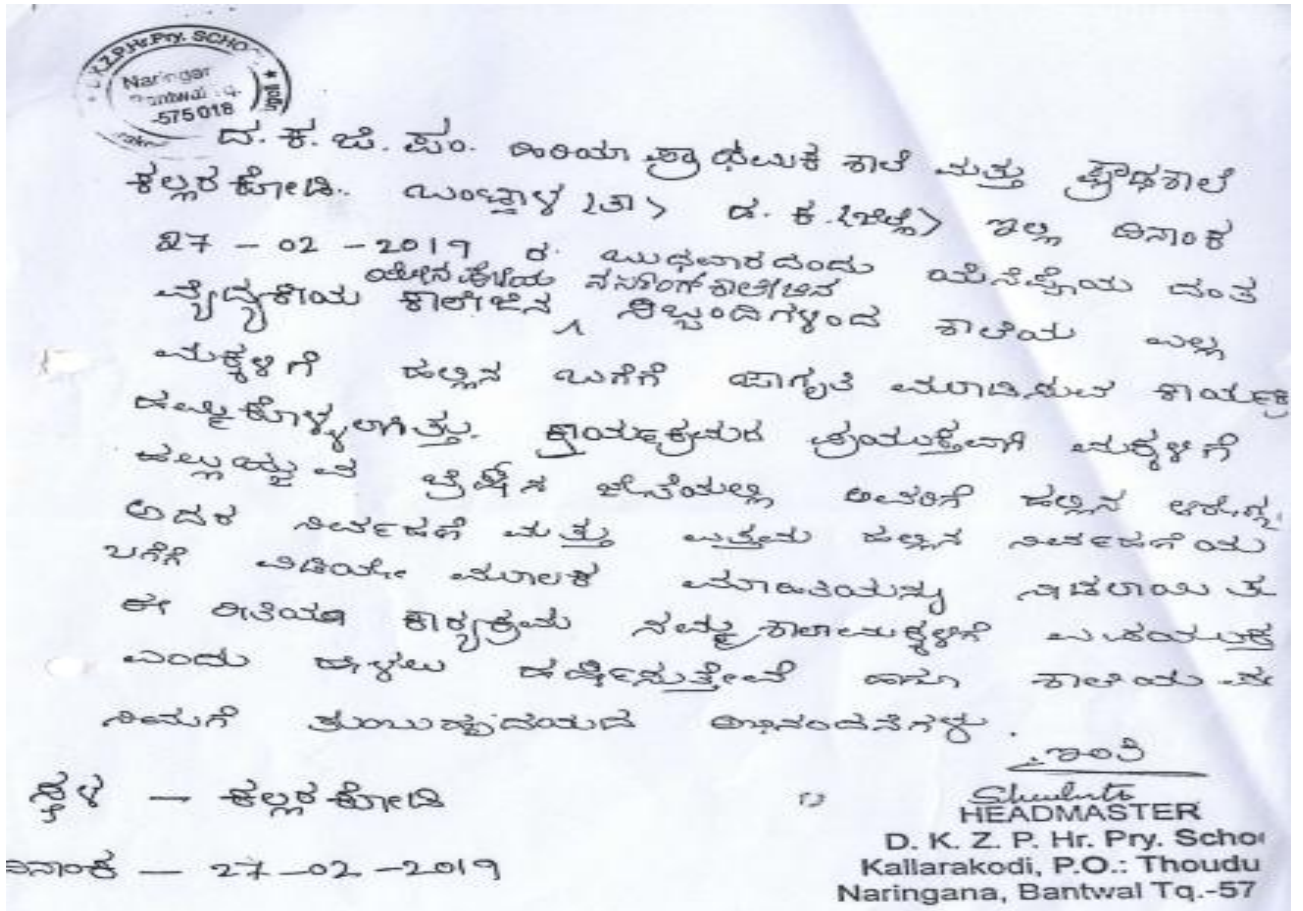 K.Z.P.Hr.Pry. SCHO
Naringan
Bantwal Tq.
-575 018
ದ. ಕ. ಜಿ. ಪಂ. ಹಿರಿಯ ಪ್ರಾಥಮಿಕ ಶಾಲೆ ಮತ್ತು ಪ್ರೌಢಶಾಲೆ
ಕಲ್ಲರಕೋಡಿ. ಬಂಟ್ವಾಳ (ತಾ) ದ. ಕ. (ಜಿಲ್ಲೆ) ಇಲ್ಲಿ ದಿನಾಂಕ
27 - 02 - 2019 ರ ಬುಧವಾರದಂದು ಯೆನೆಪೊಯ ದಂತ
ಯೇನಪೋಯ ನರ್ಸಿಂಗ್ ಕಾಲೇಜಿನ
ವೈದ್ಯಕೀಯ ಕಾಲೇಜಿನ ^ ಸಿಬ್ಬಂದಿಗಳಿಂದ ಶಾಲೆಯ ಎಲ್ಲ
ಮಕ್ಕಳಿಗೆ ಹಲ್ಲಿನ ಬಗೆಗೆ ಜಾಗೃತಿ ಮೂಡಿಸುವ ಕಾರ್ಯಕ್ರ
ಹಮ್ಮಿಕೊಳ್ಳಲಾಗಿತ್ತು. ಕಾರ್ಯಕ್ರಮದ ಪ್ರಯುಕ್ತವಾಗಿ ಮಕ್ಕಳಿಗೆ
ಹಲ್ಲುಜ್ಜುವ ಬ್ರೆಷ್‌ನ ಜೊತೆಯಲ್ಲಿ ಅವರಿಗೆ ಹಲ್ಲಿನ ಆರೋಗ್ಯ,
ಅದರ ನಿರ್ವಹಣೆ ಮತ್ತು ಉತ್ತಮ ಹಲ್ಲಿನ ನಿರ್ವಹಣೆಯ
ಬಗೆಗೆ ವಿಡಿಯೋ ಮೂಲಕ ಮಾಹಿತಿಯನ್ನು ನೀಡಲಾಯಿತು
ಈ ರೀತಿಯ ಕಾರ್ಯಕ್ರಮ ನಮ್ಮ ಶಾಲಾಮಕ್ಕಳಿಗೆ ಉಪಯುಕ್ತ
ಎಂದು ಹೇಳಲು ಹರ್ಷಿಸುತ್ತೇವೆ ಹಾಗೂ ಶಾಲೆಯ
ನಿಮಗೆ ತುಂಬುಹೃದಯದ ಅಭಿನಂದನೆಗಳು.
ಇಂತಿ
ಸ್ಥಳ - ಕಲ್ಲರಕೋಡಿ
HEADMASTER
D. K. Z. P. Hr. Pry. Scho
Kallarakodi, P.O.: Thoudu
Naringana, Bantwal Tq.-57
ದಿನಾಂಕ - 27-02-2019